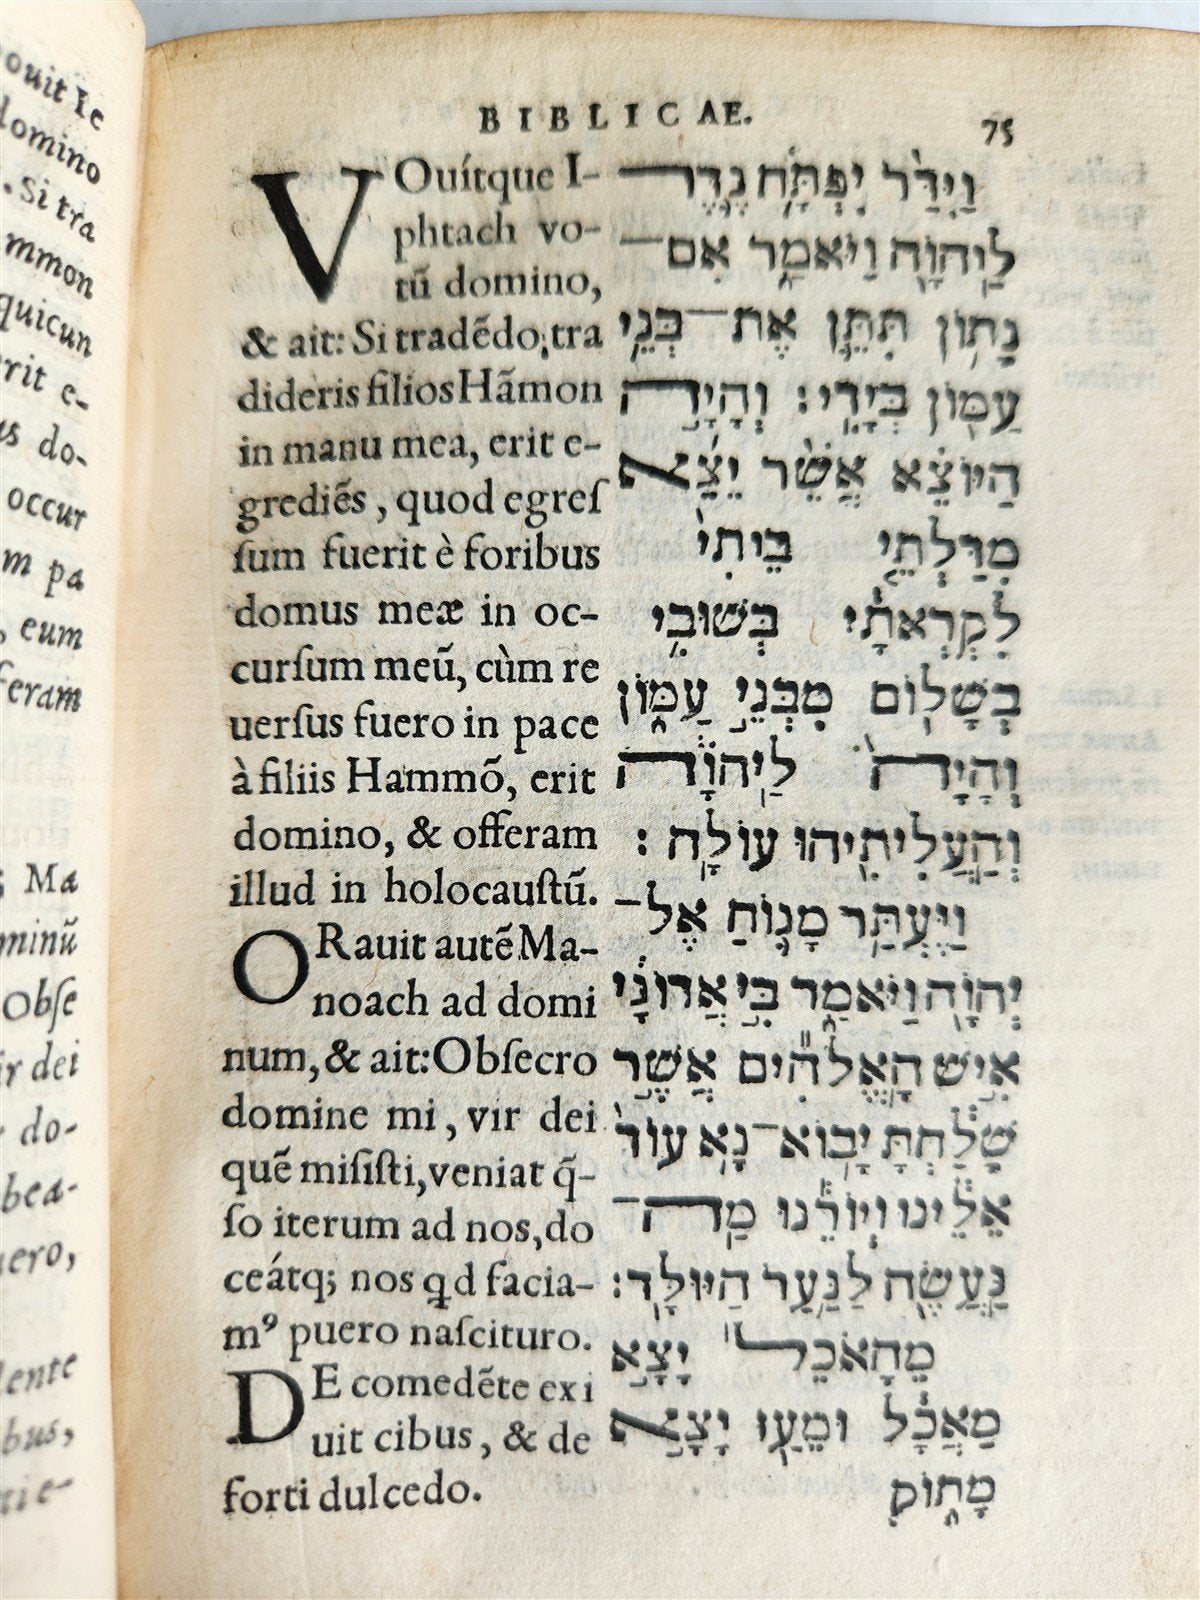 domino
Si tra
mmon
quicun
do-
occur
m pa
eum
feram
Ma
minū
Obſe
dei
do-
BIBLICAE.
75
VOuítque I-
phtach vo-
tū domino,
& ait: Si tradēdo, tra
dideris filios Hāmon
in manu mea, erit e-
grediēs, quod egreſ
ſum fuerit è foribus
domus meæ in oc-
curſum meū, cùm re
uerſus fuero in pace
à filiis Hammō, erit
domino, & offeram
illud in holocauſtū.
ORauit autē Ma-
noach ad domi
num, & ait: Obſecro
domine mi, vir dei
quē miſiſti, veniat q̄-
ſo iterum ad nos, do
ceátq; nos qd facia-
m⁹ puero naſcituro.
DE comedēte exi
uit cibus, & de
forti dulcedo.
וַיִּדַּר יִפְתָּח נֶדֶר
לַיהוָה וַיֹּאמַר אִם־
נָתוֹן תִּתֵּן אֶת־בְּנֵי
עַמּוֹן בְּיָדִי׃ וְהָיָה
הַיּוֹצֵא אֲשֶׁר יֵצֵא
מִדַּלְתֵי בֵיתִי
לִקְרָאתִי בְּשׁוּבִי
בְשָׁלוֹם מִבְּנֵי עַמּוֹן
וְהָיָה לַיהוָה
וְהַעֲלִיתִיהוּ עוֹלָה׃
וַיֶּעְתַּר מָנוֹחַ אֶל־
יְהוָה וַיֹּאמַר בִּי אֲדוֹנָי
אִישׁ הָאֱלֹהִים אֲשֶׁר
שָׁלַחְתָּ יָבוֹא־נָא עוֹד
אֵלֵינוּ וְיוֹרֵנוּ מַה־
נַּעֲשֶׂה לַנַּעַר הַיּוּלָּד׃
מֵהָאֹכֵל יָצָא
מַאֲכָל וּמֵעַז יָצָא
מָתוֹק